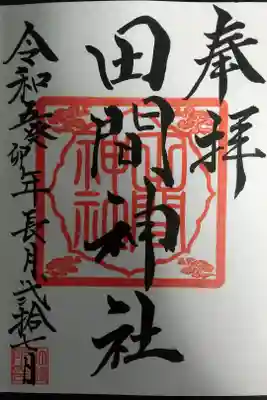 奉拝
田間神社
令和五癸卯年長月弐拾七日